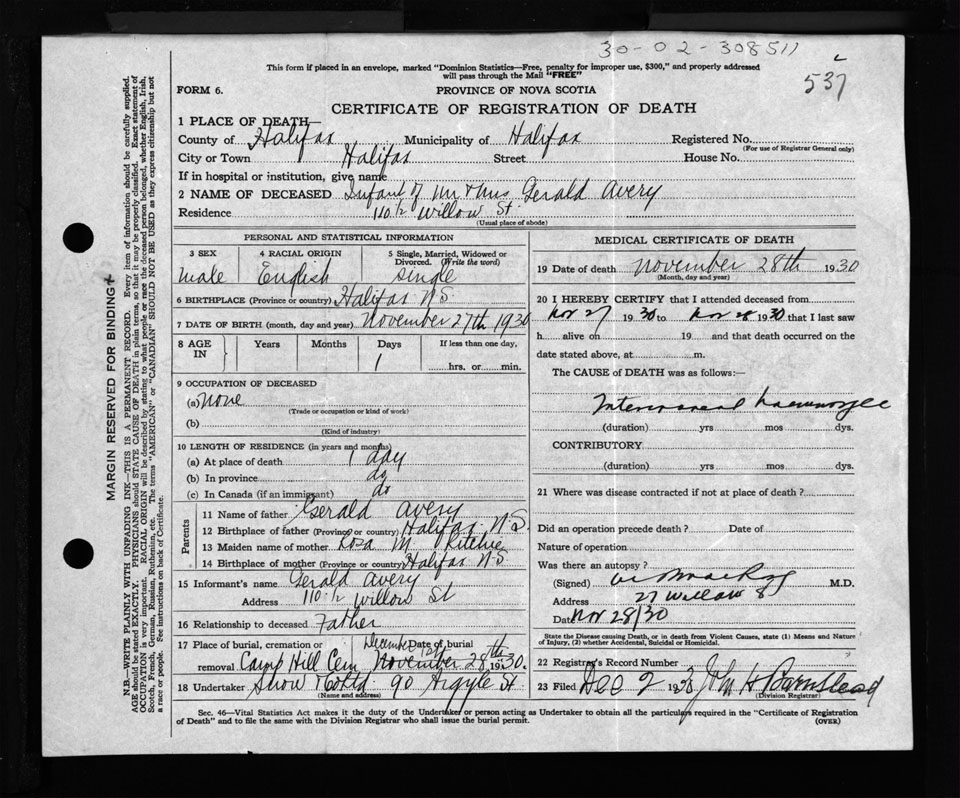 30-02-308511
537
This form if placed in an envelope, marked "Dominion Statistics—Free, penalty for improper use, $300," and properly addressed
will pass through the Mail "FREE"
FORM 6.
PROVINCE OF NOVA SCOTIA
CERTIFICATE OF REGISTRATION OF DEATH
1 PLACE OF DEATH—
County of Halifax Municipality of Halifax Registered No.
(For use of Registrar General only)
City or Town Halifax Street House No.
If in hospital or institution, give name
2 NAME OF DECEASED Infant of Mr & Mrs Gerald Avery
Residence 110½ Willow St
(Usual place of abode)
PERSONAL AND STATISTICAL INFORMATION
3 SEX 4 RACIAL ORIGIN 5 Single, Married, Widowed or
Divorced. (Write the word)
male English single
6 BIRTHPLACE (Province or country) Halifax N S
7 DATE OF BIRTH (month, day and year) November 27th 1930
8 AGE IN Years Months Days If less than one day,
1 hrs. or min.
9 OCCUPATION OF DECEASED
(a) None
(Trade or occupation or kind of work)
(b)
(Kind of industry)
10 LENGTH OF RESIDENCE (in years and months)
(a) At place of death 1 day
(b) In province do
(c) In Canada (if an immigrant) do
Parents
11 Name of father Gerald Avery
12 Birthplace of father (Province or country) Halifax N S
13 Maiden name of mother Rosa M Ritchie
14 Birthplace of mother (Province or country) Halifax N S
15 Informant's name Gerald Avery
Address 110½ Willow St
16 Relationship to deceased Father
17 Place of burial, cremation or Date of burial
December 1st
removal Camp Hill Cem November 28th 1930.
18 Undertaker Snow & Co Ltd 90 Argyle St
(Name and address)
MEDICAL CERTIFICATE OF DEATH
19 Date of death November 28th 1930
(Month, day and year)
20 I HEREBY CERTIFY that I attended deceased from
Nov 27 1930 to Nov 28 1930 that I last saw
h alive on 19 and that death occurred on the
date stated above, at m.
The CAUSE of DEATH was as follows:—
haemorrhage
(duration) yrs mos dys.
CONTRIBUTORY
(duration) yrs mos dys.
21 Where was disease contracted if not at place of death?
Did an operation precede death? Date of
Nature of operation
Was there an autopsy?
(Signed) M.D.
Address 27 Willow S
Date Nov 28/30
State the Disease causing Death, or in death from Violent Causes, state (1) Means and Nature
of Injury, (2) whether Accidental, Suicidal or Homicidal.
22 Registrar's Record Number
23 Filed Dec 2 1930 John H Barnstead
(Division Registrar)
Sec. 46—Vital Statistics Act makes it the duty of the Undertaker or person acting as Undertaker to obtain all the particulars required in the "Certificate of Registration
of Death" and to file the same with the Division Registrar who shall issue the burial permit.
(OVER)
MARGIN RESERVED FOR BINDING
N.B.—WRITE PLAINLY WITH UNFADING INK—THIS IS A PERMANENT RECORD. Every item of information should be carefully supplied.
AGE should be stated EXACTLY. PHYSICIANS should STATE CAUSE OF DEATH in plain terms, so that it may be properly classified. Exact statement of
OCCUPATION is very important. RACIAL ORIGIN will be described by stating to what people or race the deceased person belonged, whether English, Irish,
Scotch, French, German, Russian, Ruthenian, etc. The terms "AMERICAN" or "CANADIAN" SHOULD NOT BE USED as they express citizenship but not
a race or people. See instructions on back of Certificate.